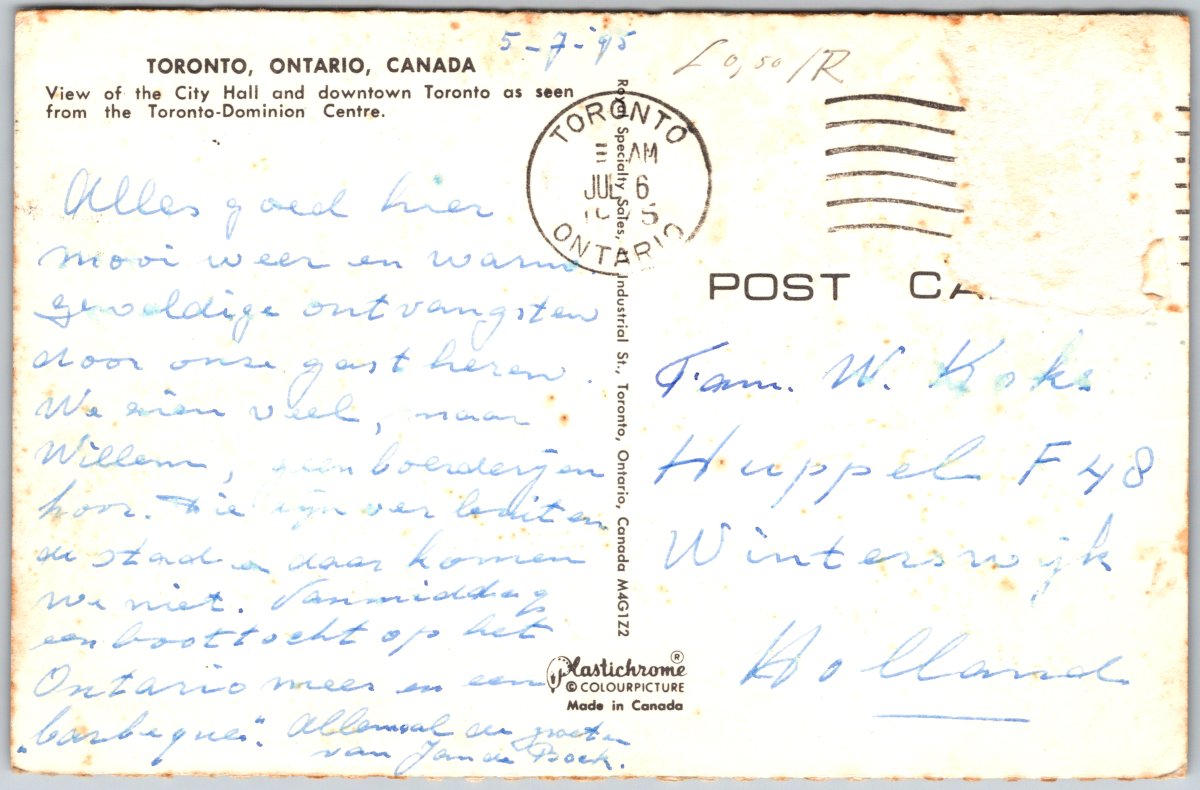 5-7-'95
TORONTO, ONTARIO, CANADA
View of the City Hall and downtown Toronto as seen
from the Toronto-Dominion Centre.
Alles goed hier
mooi weer en warm
geweldige ontvangsten
door onze gast heren.
We zien veel, maar
Willem, geen boerderijen
hoor. Die zijn ver buiten
de stad en daar komen
we niet. Vanmiddag
een boottocht op het
Ontario meer en een
"barbeque". Allemaal de groeten
van Jan de Boek.
Royal Specialty Sales, Industrial St., Toronto, Ontario, Canada M4G1Z2
Plastichrome ®
© COLOURPICTURE
Made in Canada
TORONTO
AM
JUL 6
ONTARIO
POST CA
Fam. W. Koks
Huppel F 48
Winterswijk
Holland